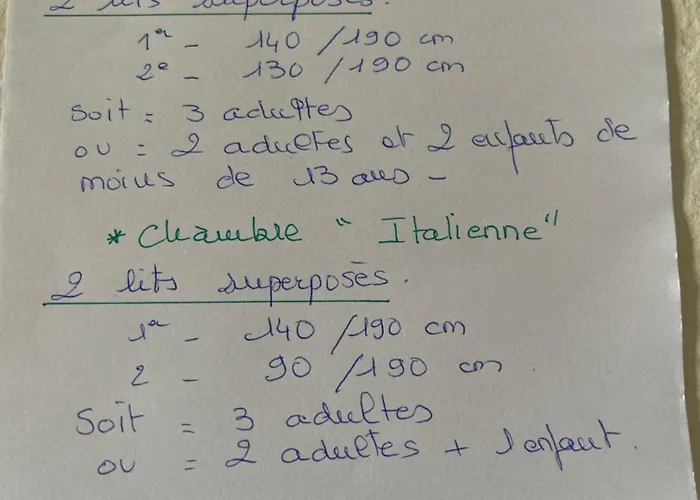 2 lits superposés.
1er - 140 /190 cm
2e - 130 /190 cm
soit = 3 adultes
ou = 2 adultes et 2 enfants de
moins de 13 ans -
* Chambre " Italienne"
2 lits superposés.
1er - 140 /190 cm
2 - 90 /190 cm
Soit = 3 adultes
ou = 2 adultes + 1 enfant.